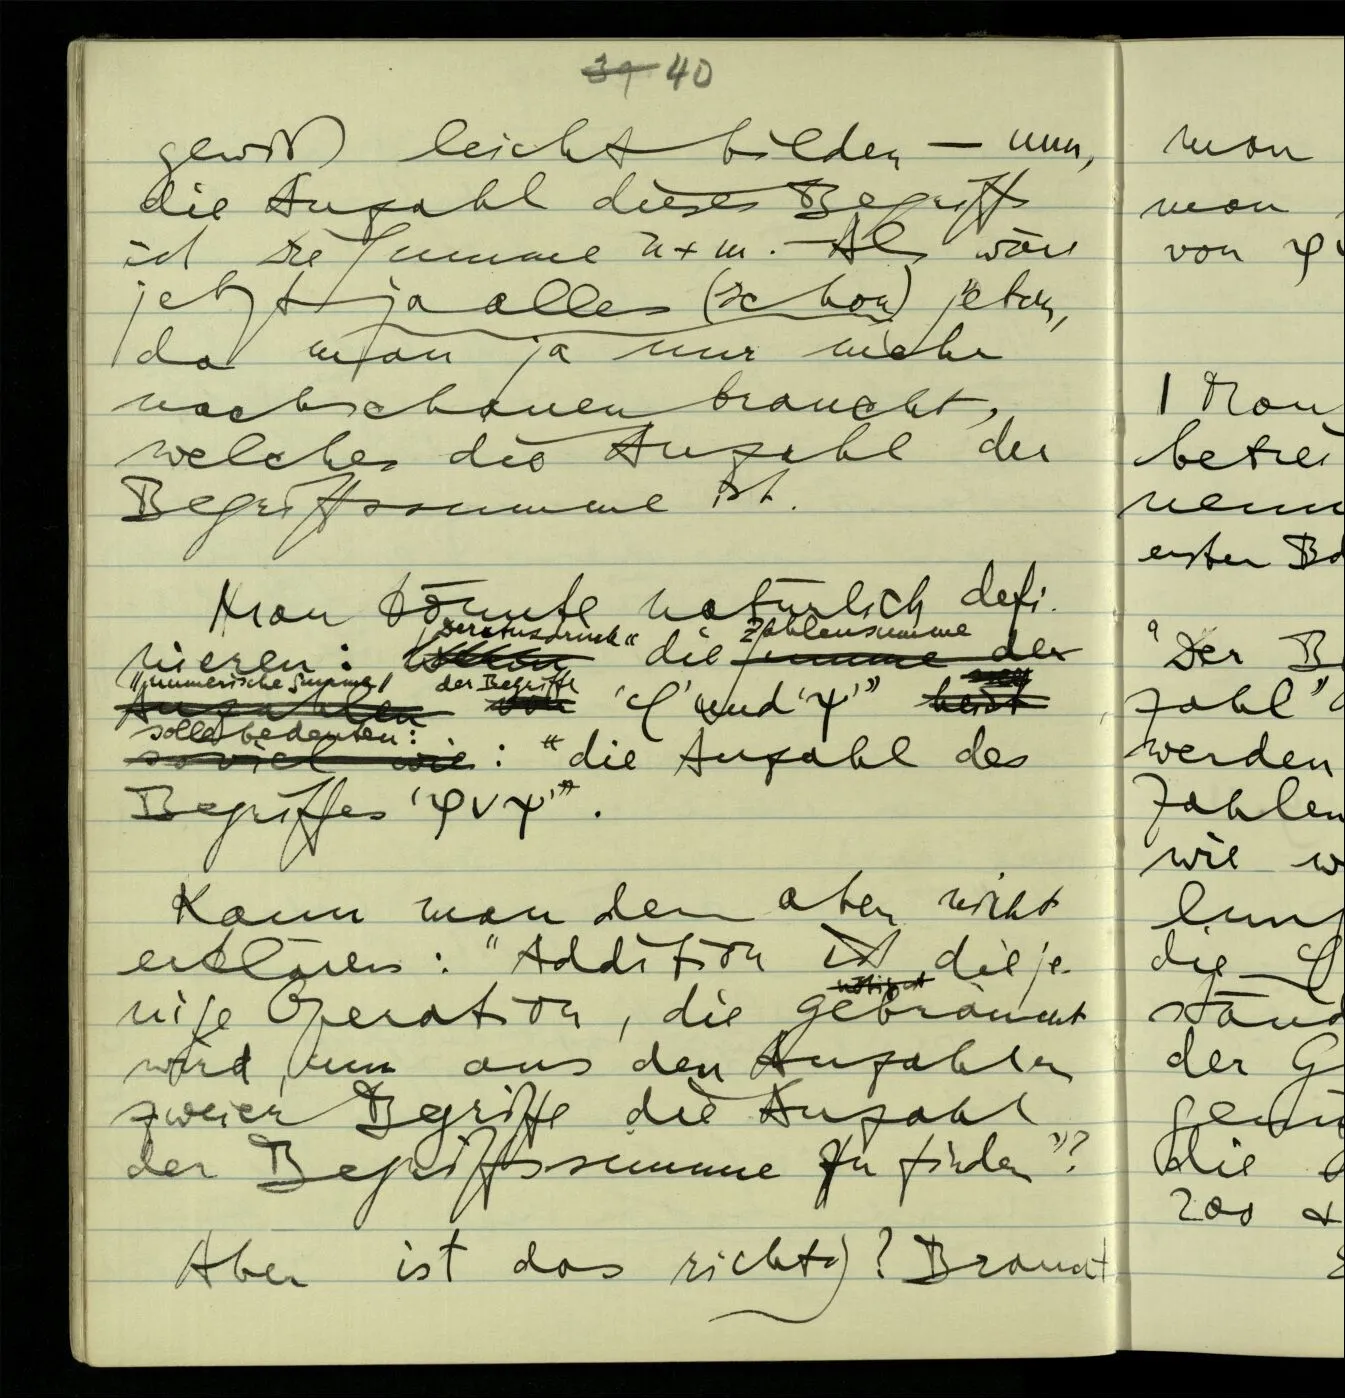 39 40
gewiß leicht bilden – nun,
die Anzahl dieses Begriffs
ist die Summe n + m. – Als wäre
jetzt ja alles (schon) getan,
da man ja nur mehr
nachschauen braucht,
welches die Anzahl der
Begriffssumme ist.
Man könnte natürlich defi-
nieren: der Ausdruck “die Zahlensumme Summe der
“numerische Summe Anzahlen der Begriffe von ‘φ’ und ‘ψ’” heißt
solle bedeuten:
soviel wie: “die Anzahl des
Begriffes ‘φ ∨ ψ’”.
Kann man denn aber nicht
erklären: “Addition ist dieje-
nige Operation, die gebraucht
wird, um aus den Anzahlen
zweier Begriffe die Anzahl
der Begriffssumme zu finden”?
Aber ist das richtig? Braucht
man
man
von φ
1 Man
betrei
nenn
ersten
“Der B
Zahl”
werden
Zahlen
wie w
lung
die
ständ
der G
die
200 +